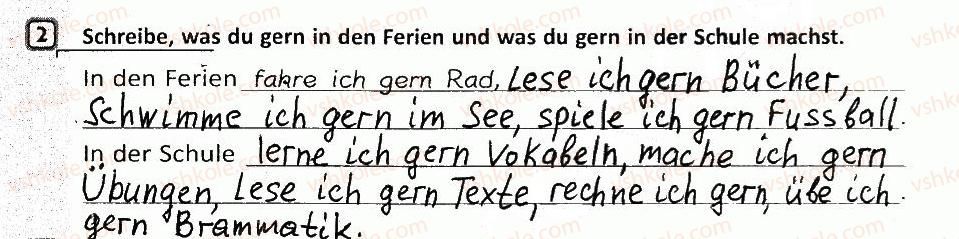 2 Schreibe, was du gern in den Ferien und was du gern in der Schule machst.
In den Ferien fahre ich gern Rad, Lese ich gern Bücher,
Schwimme ich gern im See, spiele ich gern Fussball.
In der Schule lerne ich gern Vokabeln, mache ich gern
Übungen, Lese ich gern Texte, rechne ich gern, übe ich
gern Brammatik.